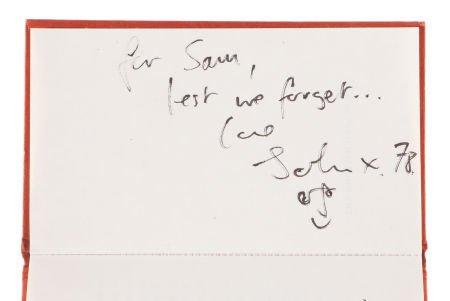 for Sam,
lest we forget...
love
John x. 78.